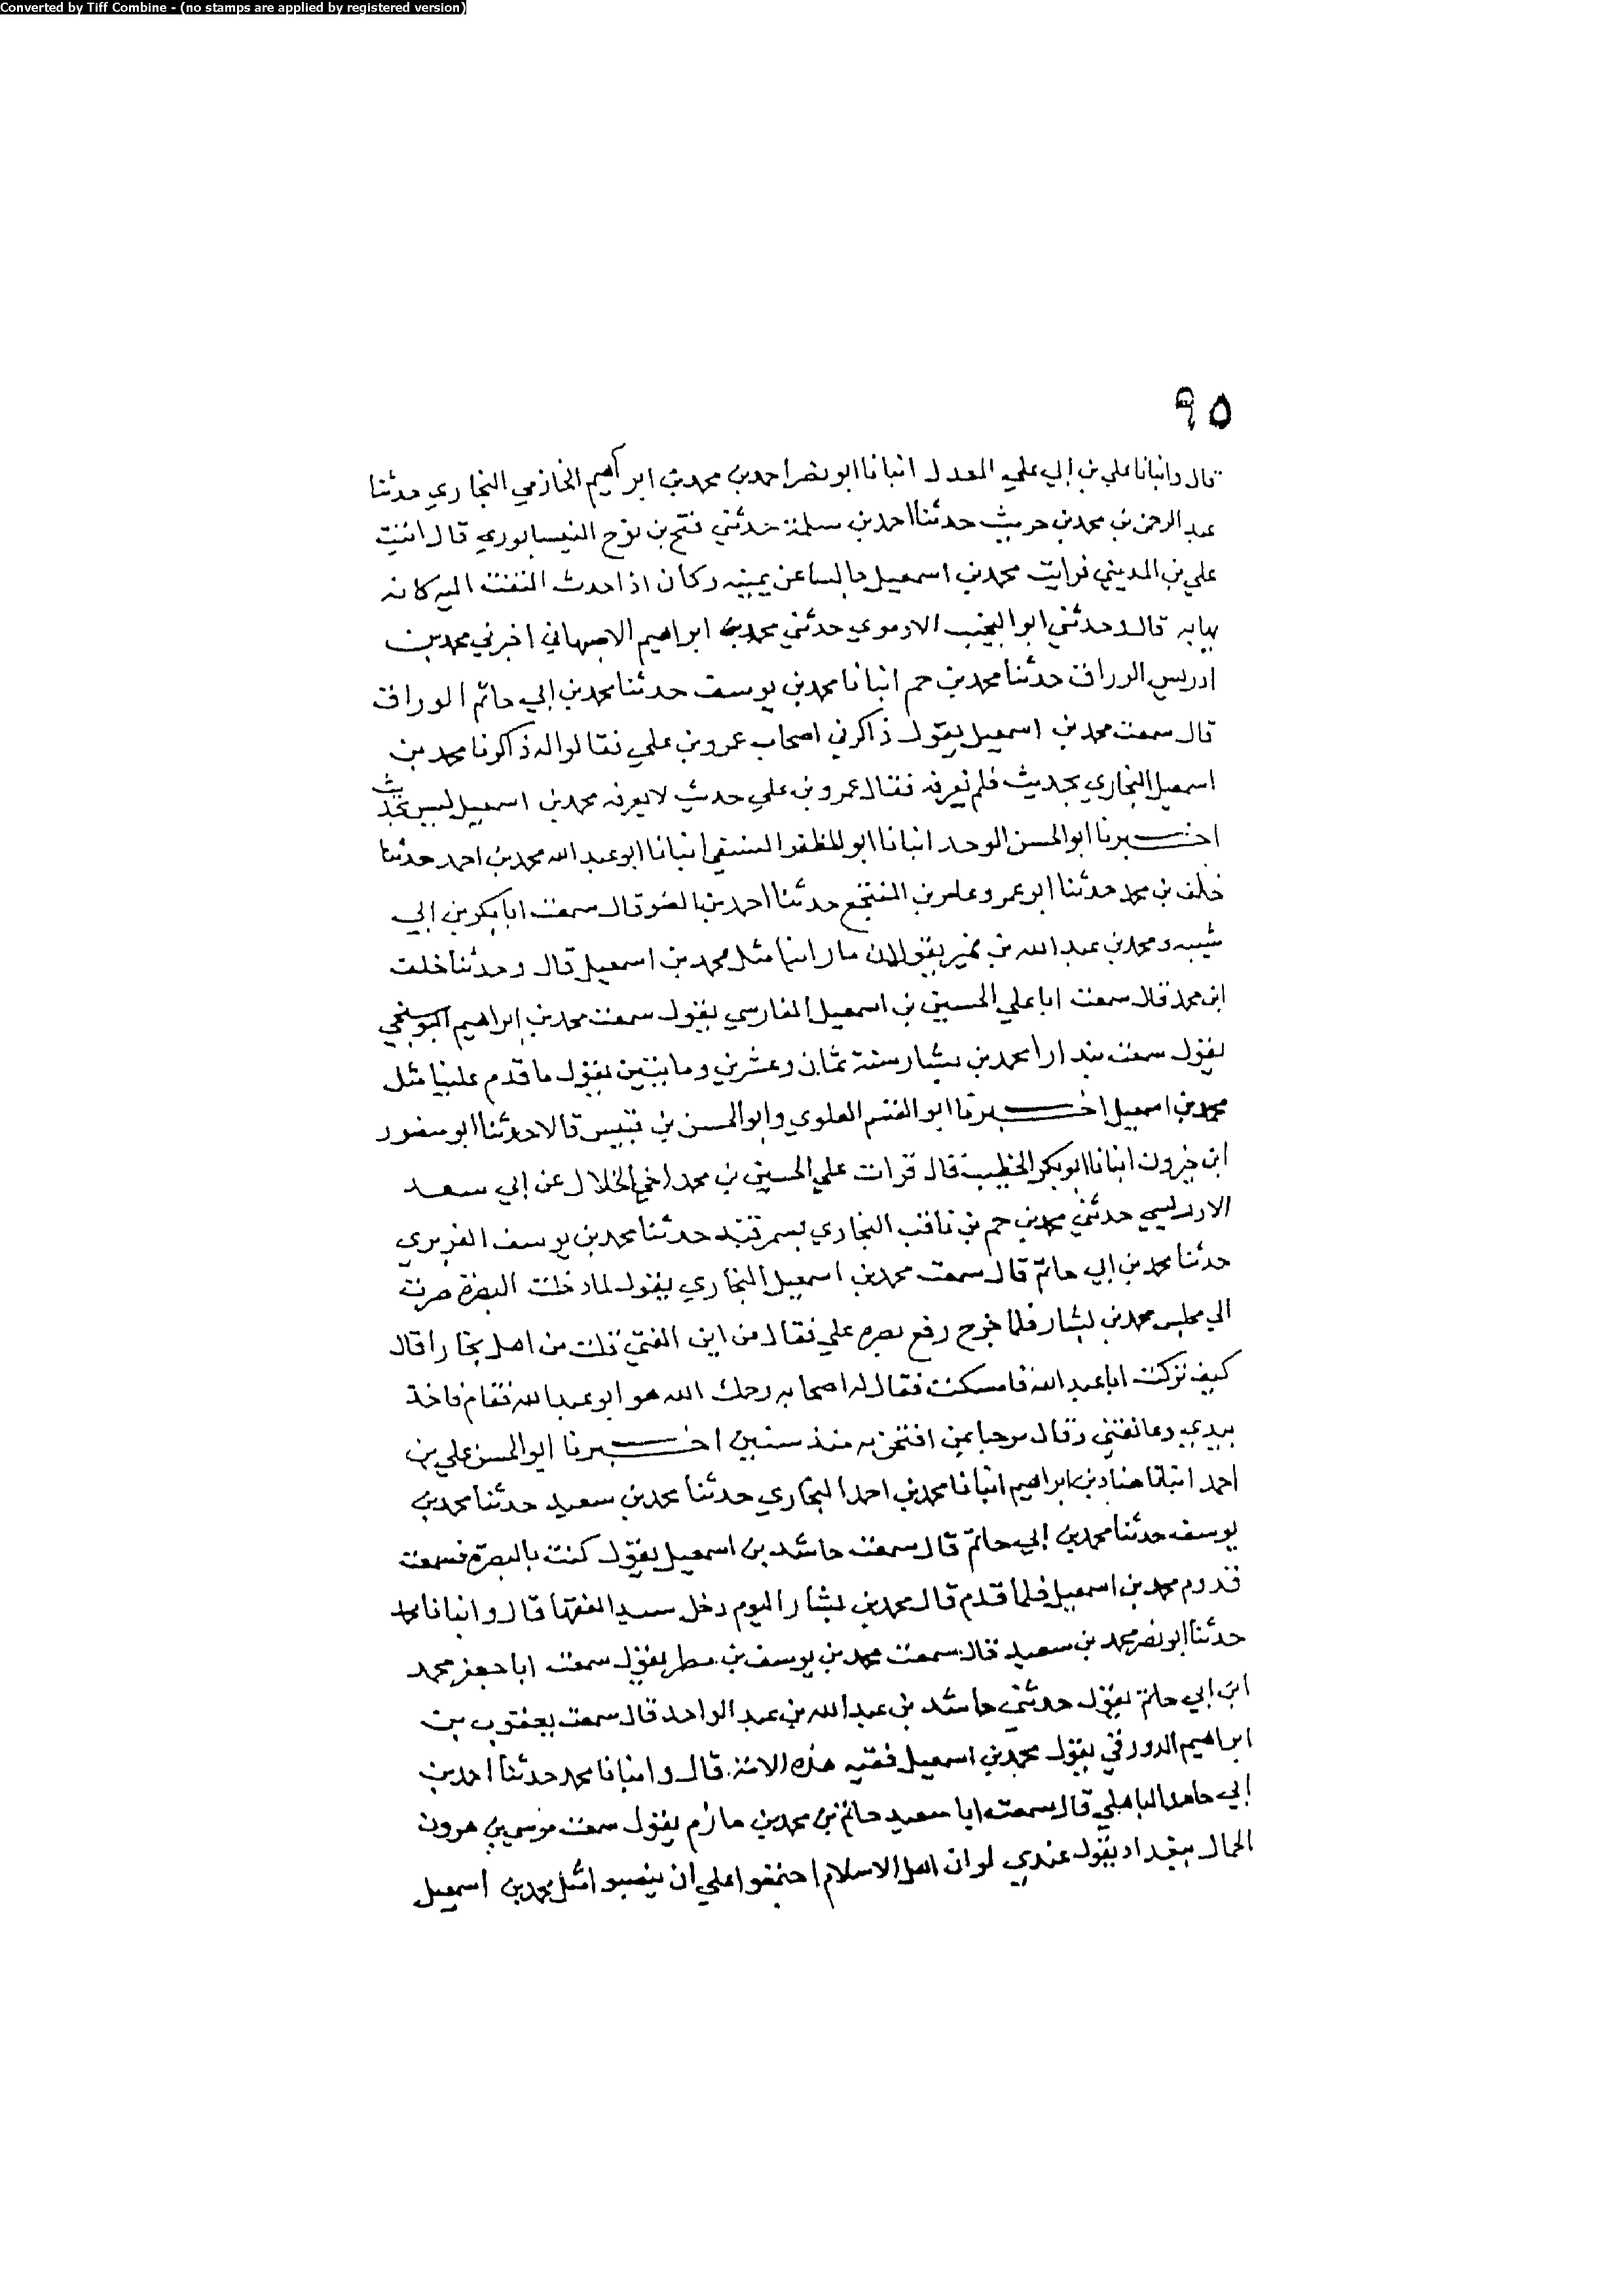 Converted by Tiff Combine - (no stamps are applied by registered version)
٩٥
قال وانبانا علي بن ابي علي المعدل انبانا ابو نصر احمد بن محمد بن ابراهيم الخازمي البخاري حدثنا
عبد الرحمن بن محمد بن حريث حدثنا احمد بن سلمة حدثني فتح بن نوح النيسابوري قال اتيت
علي بن المديني فرايت محمد بن اسمعيل جالسا عن يمينه وكان اذا حدث التفت اليه كانه
يهابه قال وحدثني ابو النجيب الارموي حدثني محمد بن ابراهيم الاصبهاني اخبرني محمد بن
ادريس الوراق حدثنا محمد بن حم انبانا محمد بن يوسف حدثنا محمد بن ابي حاتم الوراق
قال سمعت محمد بن اسمعيل يقول ذاكرني اصحاب عمرو بن علي فقالوا له ذاكرنا محمد بن
اسمعيل البخاري بحديث فلم نعرفه فقال عمرو بن علي حديث لا يعرفه محمد بن اسمعيل ليس بحديث
اخبرنا ابو الحسن الموحد انبانا ابو المظفر النسفي انبانا ابو عبد الله محمد بن احمد حدثنا
خلف بن محمد حدثنا ابو عمرو عامر بن المنتجع حدثنا احمد بن الضو قال سمعت ابا بكر بن ابي
شيبه ومحمد بن عبد الله بن نمير يقولان ما راينا مثل محمد بن اسمعيل قال وحدثنا خلف
ابن محمد قال سمعت ابا علي الحسين بن اسمعيل الفارسي يقول سمعت محمد بن ابراهيم البوشنجي
يقول سمعت بندارا محمد بن بشار سنة ثمان وعشرين ومايتين يقول ما قدم علينا مثل
محمد بن اسمعيل اخبرنا ابو القسم العلوي وابو الحسن بن قبيس قالا حدثنا ابو منصور
ابن خيرون انبانا ابو بكر الخطيب قال قرات علي الحسين بن محمد اخي الخلال عن ابي سعد
الادريسي حدثني محمد بن حم بن ناقب البخاري بسمرقند حدثنا محمد بن يوسف الفربري
حدثنا محمد بن ابي حاتم قال سمعت محمد بن اسمعيل البخاري يقول لما دخلت البصرة صرت
الي مجلس محمد بن بشار فلما خرج رفع بصره علي فقال من اين الفتي قلت من اهل بخارا قال
كيف تركت ابا عبد الله فامسكت فقال له اصحابه رحمك الله هو ابو عبد الله فقام فاخذ
بيدي وعانقني وقال مرحبا بمن افتخر به منذ سنين اخبرنا ابو الحسن علي بن
احمد انبانا هناد بن ابراهيم انبانا محمد بن احمد البخاري حدثنا محمد بن سعيد حدثنا محمد بن
يوسف حدثنا محمد بن ابي حاتم قال سمعت حاشد بن اسمعيل يقول كنت بالبصرة فسمعت
قدوم محمد بن اسمعيل فلما قدم قال محمد بن بشار اليوم دخل سيد الفقها قال وانبانا محمد
حدثنا ابو نصر محمد بن سعيد قال سمعت محمد بن يوسف بن مطر يقول سمعت ابا جعفر محمد
ابن ابي حاتم يقول حدثني حاشد بن عبد الله بن عبد الواحد قال سمعت يعقوب بن
ابراهيم الدورقي يقول محمد بن اسمعيل فقيه هذه الامة قال وانبانا محمد حدثنا احمد بن
ابي حامد الباهلي قال سمعت ابا سعيد حاتم بن محمد بن حازم يقول سمعت موسي بن هرون
الحمال ببغداد يقول عندي لو ان اهل الاسلام اجتمعوا علي ان ينصبوا مثل محمد بن اسمعيل